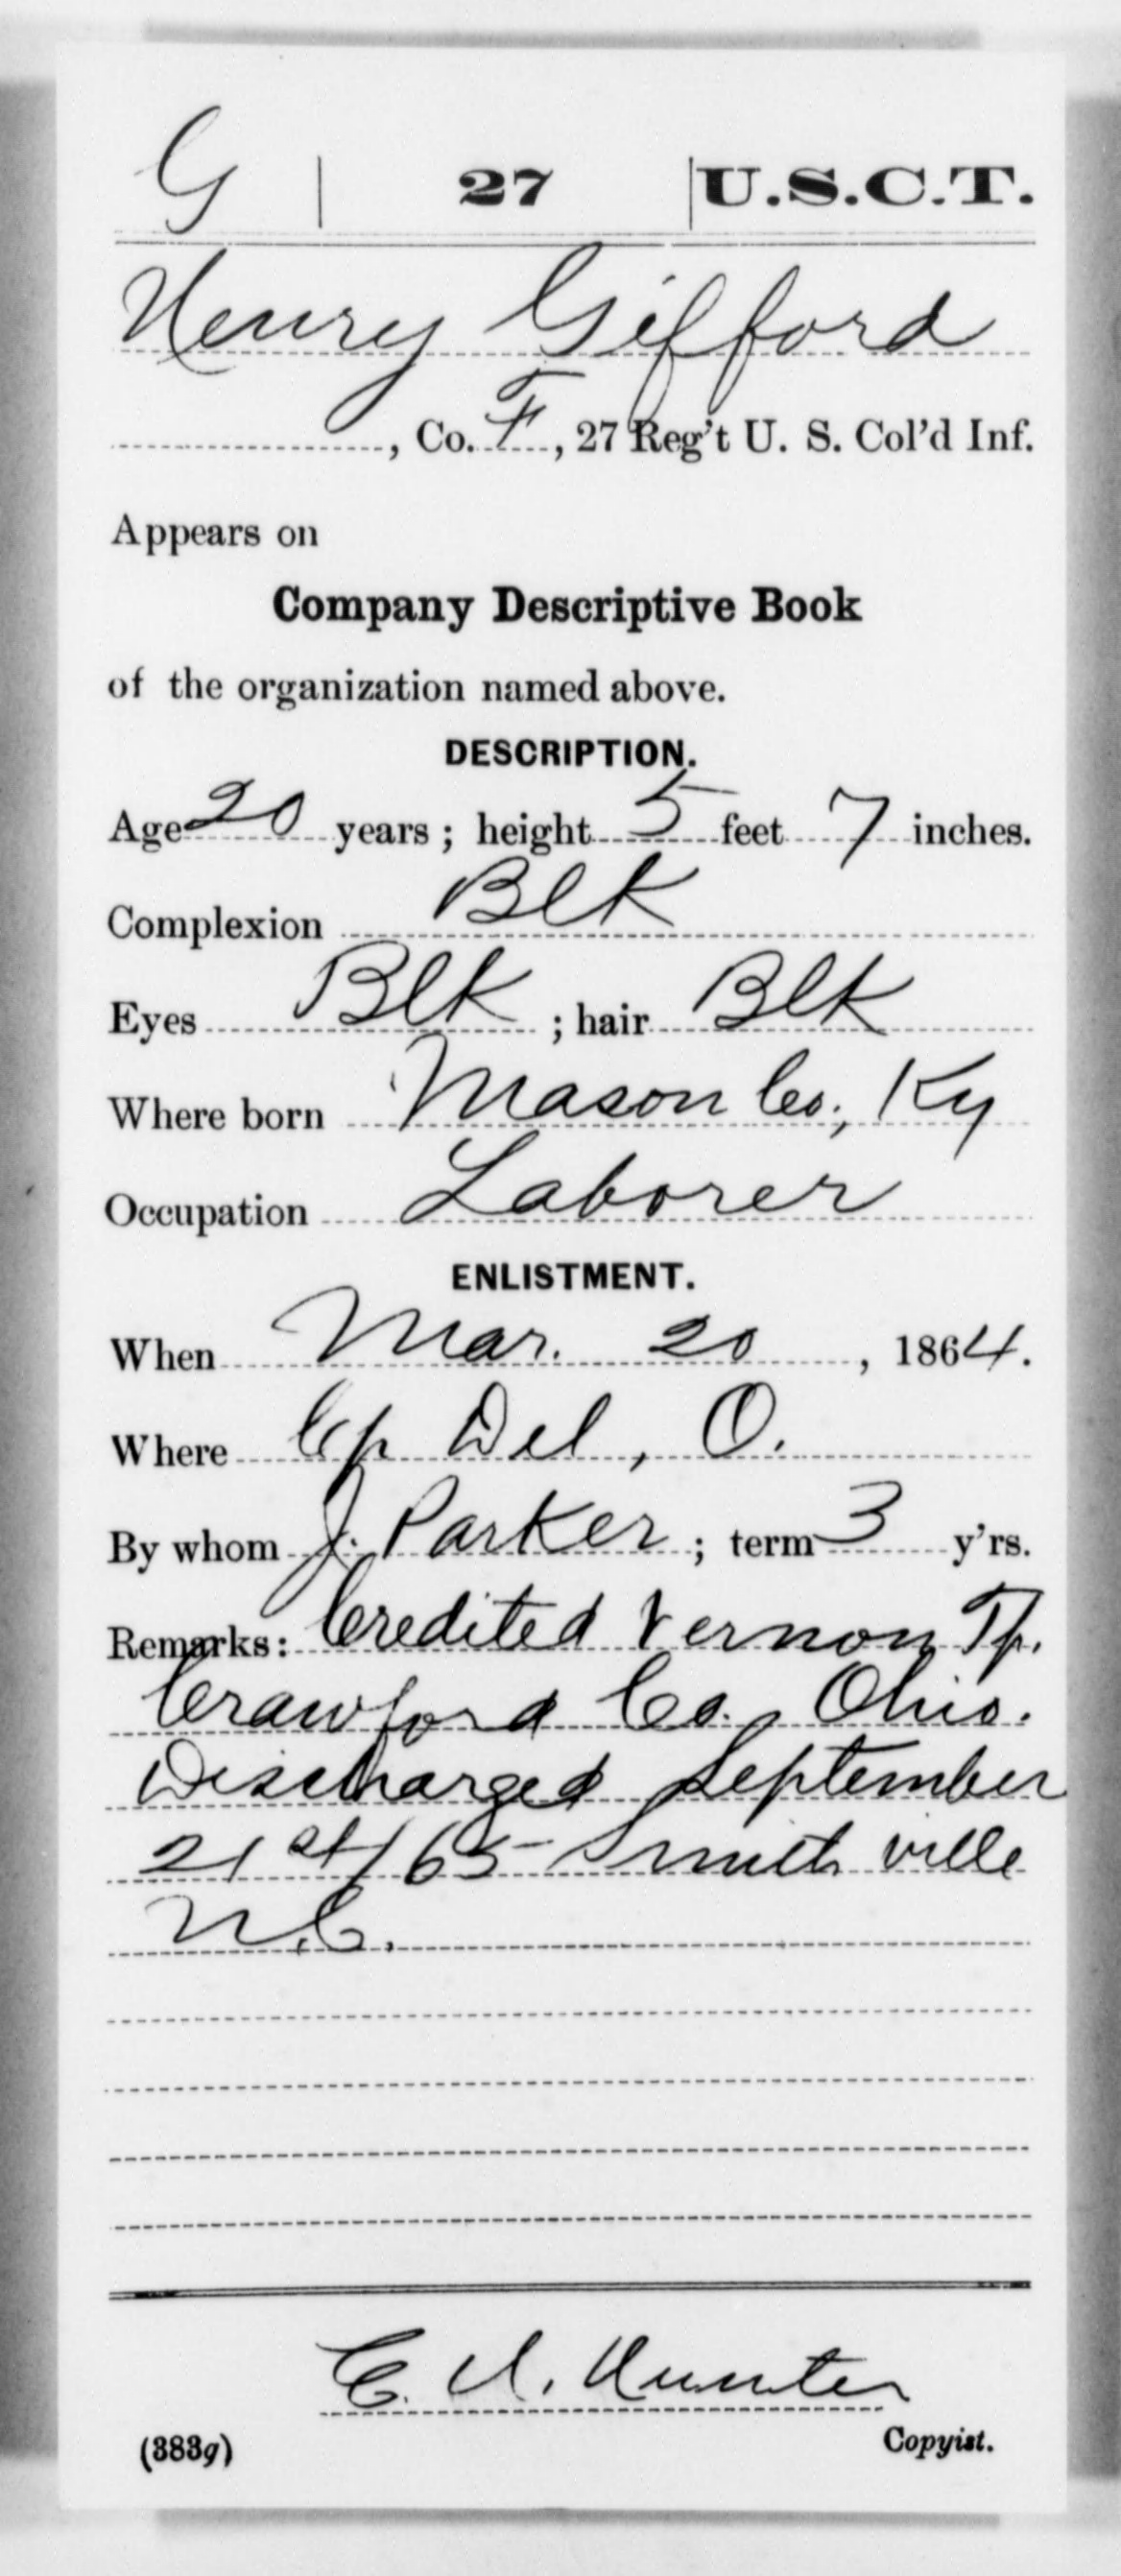 G | 27 | U.S.C.T.
Henry Gifford
, Co. F, 27 Reg't U. S. Col'd Inf.
Appears on
Company Descriptive Book
of the organization named above.
DESCRIPTION.
Age 20 years; height 5 feet 7 inches.
Complexion Blk
Eyes Blk; hair Blk
Where born Mason Co., Ky
Occupation Laborer
ENLISTMENT.
When Mar. 20, 1864.
Where Cp Del, O.
By whom J. Parker; term 3 y'rs.
Remarks: Credited Vernon Tp.
Crawford Co. Ohio.
Discharged September
21st/65 Smithville
N.C.
C. H. Hunter
(383g) Copyist.